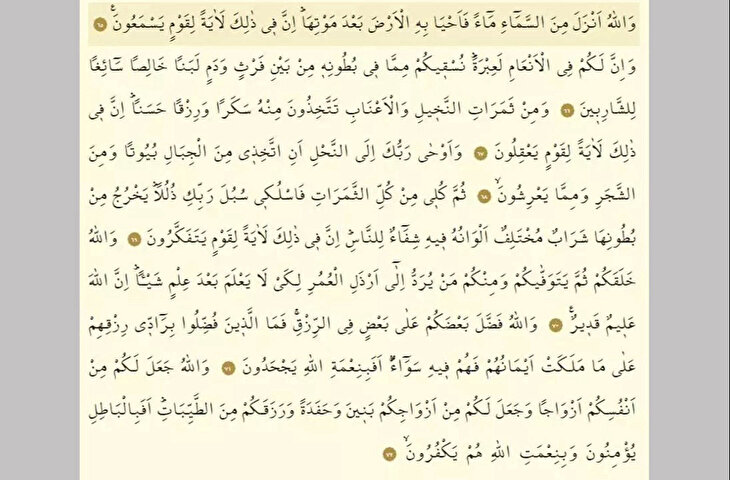 وَاللّٰهُ اَنْزَلَ مِنَ السَّمَٓاءِ مَٓاءً فَاَحْيَا بِهِ الْاَرْضَ بَعْدَ مَوْتِهَاۜ اِنَّ ف۪ي ذٰلِكَ لَاٰيَةً لِقَوْمٍ يَسْمَعُونَ۟ ﴿٦٥﴾
وَاِنَّ لَكُمْ فِي الْاَنْعَامِ لَعِبْرَةًۜ نُسْق۪يكُمْ مِمَّا ف۪ي بُطُونِه۪ مِنْ بَيْنِ فَرْثٍ وَدَمٍ لَبَنًا خَالِصًا سَٓائِغًا
لِلشَّارِب۪ينَ ﴿٦٦﴾ وَمِنْ ثَمَرَاتِ النَّخ۪يلِ وَالْاَعْنَابِ تَتَّخِذُونَ مِنْهُ سَكَرًا وَرِزْقًا حَسَنًاۜ اِنَّ ف۪ي
ذٰلِكَ لَاٰيَةً لِقَوْمٍ يَعْقِلُونَ ﴿٦٧﴾ وَاَوْحٰى رَبُّكَ اِلَى النَّحْلِ اَنِ اتَّخِذ۪ي مِنَ الْجِبَالِ بُيُوتًا وَمِنَ
الشَّجَرِ وَمِمَّا يَعْرِشُونَۙ ﴿٦٨﴾ ثُمَّ كُل۪ي مِنْ كُلِّ الثَّمَرَاتِ فَاسْلُك۪ي سُبُلَ رَبِّكِ ذُلُلًاۜ يَخْرُجُ مِنْ
بُطُونِهَا شَرَابٌ مُخْتَلِفٌ اَلْوَانُهُ ف۪يهِ شِفَٓاءٌ لِلنَّاسِۜ اِنَّ ف۪ي ذٰلِكَ لَاٰيَةً لِقَوْمٍ يَتَفَكَّرُونَ ﴿٦٩﴾ وَاللّٰهُ
خَلَقَكُمْ ثُمَّ يَتَوَفّٰيكُمْ وَمِنْكُمْ مَنْ يُرَدُّ اِلٰٓى اَرْذَلِ الْعُمُرِ لِكَيْ لَا يَعْلَمَ بَعْدَ عِلْمٍ شَيْـًٔاۜ اِنَّ اللّٰهَ
عَل۪يمٌ قَد۪يرٌ۟ ﴿٧٠﴾ وَاللّٰهُ فَضَّلَ بَعْضَكُمْ عَلٰى بَعْضٍ فِي الرِّزْقِۚ فَمَا الَّذ۪ينَ فُضِّلُوا بِرَٓادّ۪ي رِزْقِهِمْ
عَلٰى مَا مَلَكَتْ اَيْمَانُهُمْ فَهُمْ ف۪يهِ سَوَٓاءٌۜ اَفَبِنِعْمَةِ اللّٰهِ يَجْحَدُونَ ﴿٧١﴾ وَاللّٰهُ جَعَلَ لَكُمْ مِنْ
اَنْفُسِكُمْ اَزْوَاجًا وَجَعَلَ لَكُمْ مِنْ اَزْوَاجِكُمْ بَن۪ينَ وَحَفَدَةً وَرَزَقَكُمْ مِنَ الطَّيِّبَاتِۜ اَفَبِالْبَاطِلِ
يُؤْمِنُونَ وَبِنِعْمَتِ اللّٰهِ هُمْ يَكْفُرُونَۙ ﴿٧٢﴾